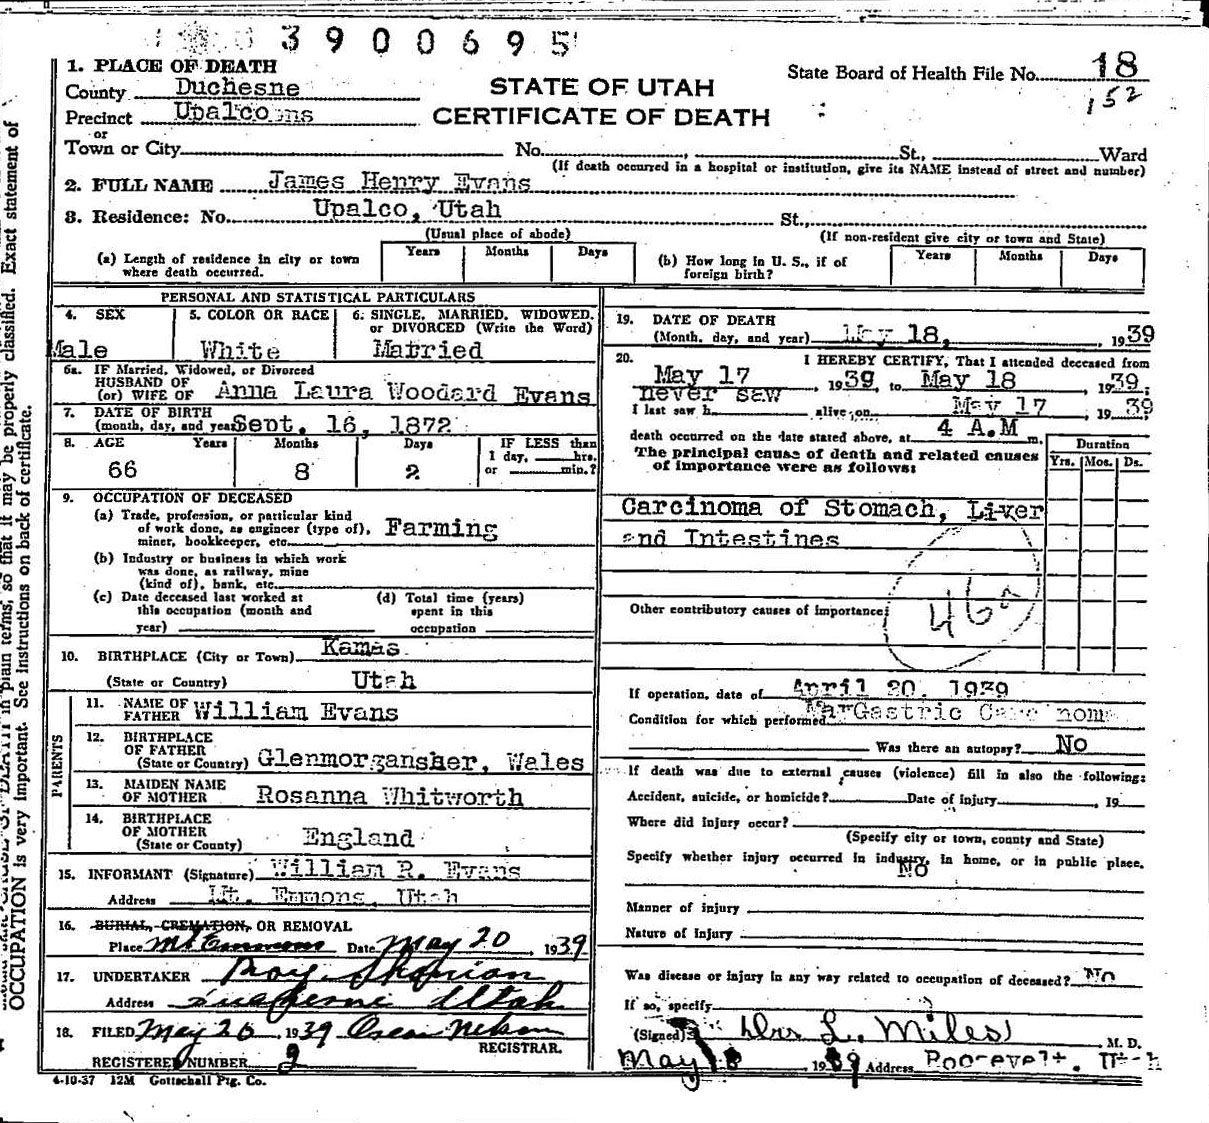 3900695
1. PLACE OF DEATH
County Duchesne
Precinct Upalco
or
Town or City No. St., Ward
STATE OF UTAH
CERTIFICATE OF DEATH
State Board of Health File No. 18
152
(If death occurred in a hospital or institution, give its NAME instead of street and number)
2. FULL NAME James Henry Evans
3. Residence: No. Upalco, Utah St.,
(Usual place of abode) (If non-resident give city or town and State)
(a) Length of residence in city or town where death occurred. Years Months Days
(b) How long in U. S., if of foreign birth? Years Months Days
PERSONAL AND STATISTICAL PARTICULARS
4. SEX
Male
5. COLOR OR RACE
White
6. SINGLE, MARRIED, WIDOWED, or DIVORCED (Write the Word)
Married
6a. IF Married, Widowed, or Divorced
HUSBAND OF
(or) WIFE OF Anna Laura Woodard Evans
7. DATE OF BIRTH
(month, day, and year) Sept. 16, 1872
8. AGE Years Months Days IF LESS than
1 day, hrs.
or min.?
66 8 2
9. OCCUPATION OF DECEASED
(a) Trade, profession, or particular kind
of work done, as engineer (type of),
miner, bookkeeper, etc. Farming
(b) Industry or business in which work
was done, as railway, mine
(kind of), bank, etc.
(c) Date deceased last worked at
this occupation (month and
year)
(d) Total time (years)
spent in this
occupation
10. BIRTHPLACE (City or Town) Kamas
(State or Country) Utah
PARENTS
11. NAME OF
FATHER William Evans
12. BIRTHPLACE
OF FATHER
(State or Country) Glenmorgansher, Wales
13. MAIDEN NAME
OF MOTHER Rosanna Whitworth
14. BIRTHPLACE
OF MOTHER
(State or County) England
15. INFORMANT (Signature) William R. Evans
Address Mt. Emmons, Utah
16. BURIAL, CREMATION, OR REMOVAL
Place Mt Emmons Date May 20, 1939
17. UNDERTAKER Roy
Address Duchesne Utah
18. FILED May 20 1939 Oscar Nelson
REGISTRAR.
REGISTERED NUMBER 2
4-10-37 12M Gottschall Ptg. Co.
19. DATE OF DEATH
(Month, day, and year) May 18, 1939
20. I HEREBY CERTIFY, That I attended deceased from
May 17, 1939, to May 18, 1939.
never saw
I last saw h alive on May 17, 1939
death occurred on the date stated above, at 4 A.M m.
The principal cause of death and related causes
of importance were as follows:
Duration
Yrs. Mos. Ds.
Carcinoma of Stomach, Liver
and Intestines
Other contributory causes of importance:
If operation, date of April 20, 1939
Condition for which performed Gastric Carcinoma
Was there an autopsy? No
If death was due to external causes (violence) fill in also the following:
Accident, suicide, or homicide? Date of injury, 19
Where did injury occur?
(Specify city or town, county and State)
Specify whether injury occurred in industry, in home, or in public place.
No
Manner of injury
Nature of injury
Was disease or injury in any way related to occupation of deceased? No
If so, specify
(Signed) L. Miles M. D.
May 18, 1939 Address Roosevelt, Utah
in plain terms, so that it may be properly classified. Exact statement of
OCCUPATION is very important. See instructions on back of certificate.